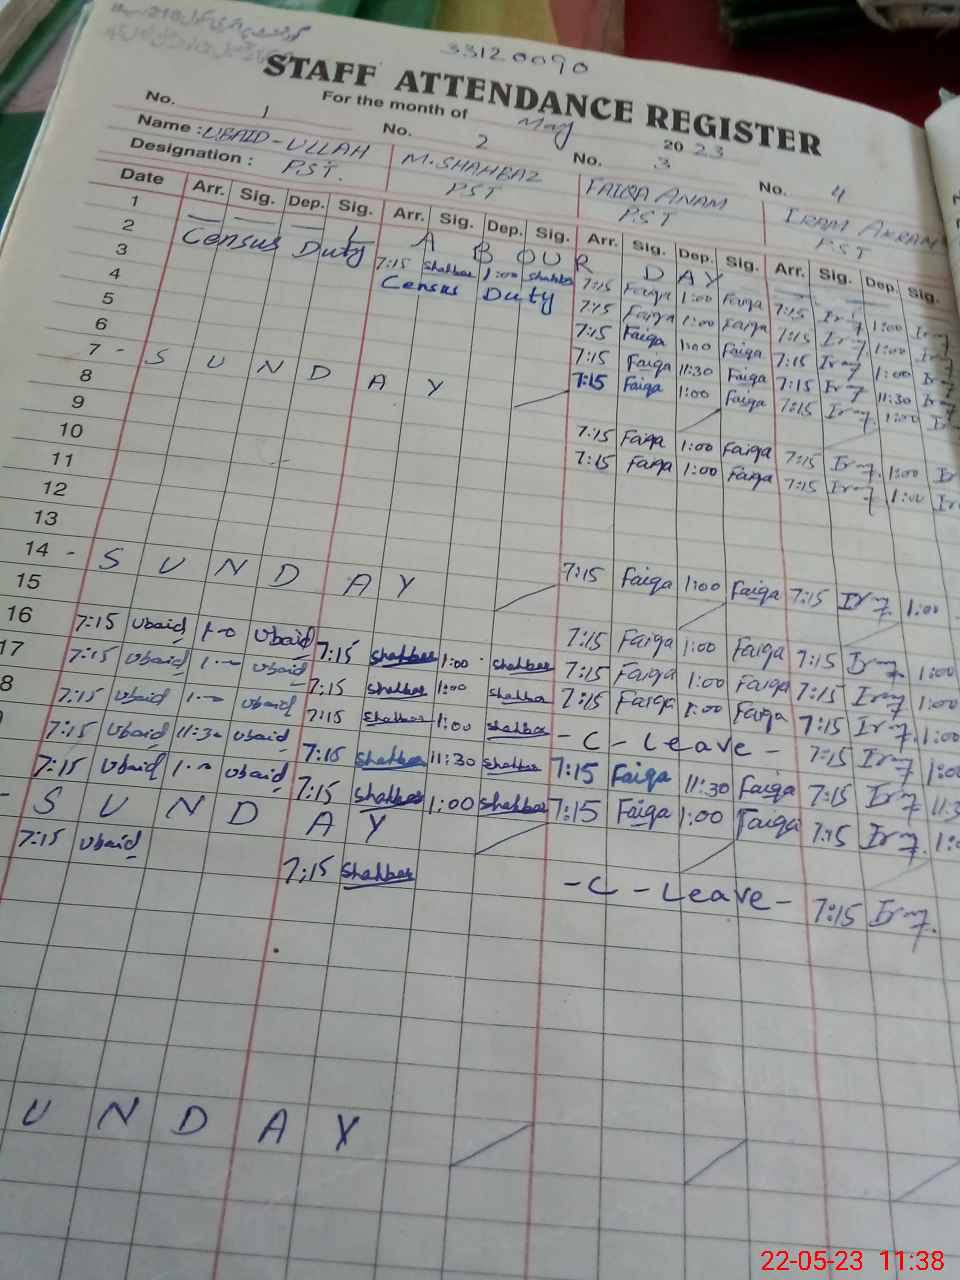 33120090
STAFF ATTENDANCE REGISTER
For the month of May 2023
No. 1 No. 2 No. 3 No. 4
Name: UBAID-ULLAH M. SHAHBAZ FAIQA ANAM IRAM AKRAM
Designation: P.S.T. P.S.T P.S.T P.S.T
Date Arr. Sig. Dep. Sig. Arr. Sig. Dep. Sig. Arr. Sig. Dep. Sig. Arr. Sig. Dep. Sig.
1 L A B OU R D A Y
2 Census Duty 7:15 Shahbaz 1:00 Shahbaz 7:15 Faiqa 1:00 Faiqa 7:15 1:00
3 Census Duty 7:15 Faiqa 1:00 Faiqa 7:15 1:00
4 7:15 Faiqa 1:00 Faiqa 7:15 1:00
5 7:15 Faiqa 11:30 Faiqa 7:15 11:30
6 7:15 Faiqa 1:00 Faiqa 7:15 1:00
7 - S U N D A Y
8 7:15 Faiqa 1:00 Faiqa 7:15 1:00
9 7:15 Faiqa 1:00 Faiqa 7:15 1:00
10
11
12
13 7:15 Faiqa 1:00 Faiqa 7:15 1:00
14 - S U N D A Y
15 7:15 Ubaid 1-0 Ubaid 7:15 Shahbaz 1:00 Shahbaz 7:15 Faiqa 1:00 Faiqa 7:15 1:00
16 7:15 Ubaid 1-- Ubaid 7:15 Shahbaz 1:00 Shahbaz 7:15 Faiqa 1:00 Faiqa 7:15 1:00
17 7:15 Ubaid 1-- Ubaid 7:15 Shahbaz 1:00 Shahbaz 7:15 Faiqa 1:00 Faiqa 7:15 1:00
8 7:15 Ubaid 11:30 Ubaid 7:15 Shahbaz 11:30 Shahbaz - C - Leave - 7:15 1:00
7:15 Ubaid 1-- Ubaid 7:15 Shahbaz 1:00 Shahbaz 7:15 Faiqa 11:30 Faiqa 7:15 11:3
7:15 Faiqa 1:00 Faiqa 7:15
- S U N D A Y
7:15 Ubaid 7:15 Shahbaz - C - Leave - 7:15
U N D A Y
22-05-23 11:38